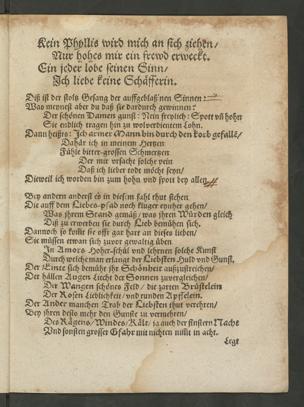 Kein Phyllis wird mich an sich ziehen/
Nur hohes mir ein frewd erweckt.
Ein jeder lobe seinen Sinn/
Ich liebe keine Schäfferin.
Diß ist der stoltz Gesang der auffgeblaß'nen Sinnen:
Was meynest aber du daß sie dardurch gewinnen?
Der schönen Damen gunst: Nein freylich: Spott vñ hohn
Sie endlich tragen hin zu wolverdientem Lohn.
Dann heißts: Ich armer Mann bin durch den korb gefallẽ/
Dahår ich in meinem Hertzen
Fühle bitter-grossen Schmertzen
Der mir ursacht solche pein
Daß ich lieber todt möcht seyn/
Dieweil ich worden bin zum hohn und spott bey allen.
Bey andern anderst es in diesem fahl thut stehen
Die auff dem Liebes-pfad noch kluger vmher gehen/
Was jhrem Stand gemäß/ was jhren Würden gleich
Diß zu erwerben sie durch Lieb bemühen sich.
Dannoch so solle sie offt gar hart an dieses lieben/
Sie müssen etwan sich zuvor gewaltig üben
In Amors Hoher-schul und lehrnen solche Kunst
Durch welche man erlangt der Liebsten Huld und Gunst,
Der Eine sich bemüht jhr Schönheit außzustreichen/
Der hållen Augen Liecht der Sonnen zuvergleichen/
Der Wangen schönes Feld/ die zarten Brüstelein
Der Rosen Lieblichkeit/ und runden Äpffelein.
Der Ander manchen Trab der Liebsten thut verehren/
Bey jhren desto mehr den Gunste zu vermehren/
Des Rägens/ Windes/ Kält/ ja auch der finstern Nacht
Vnd sonsten grosser Gfahr mit nichten nimt in acht.
Legt